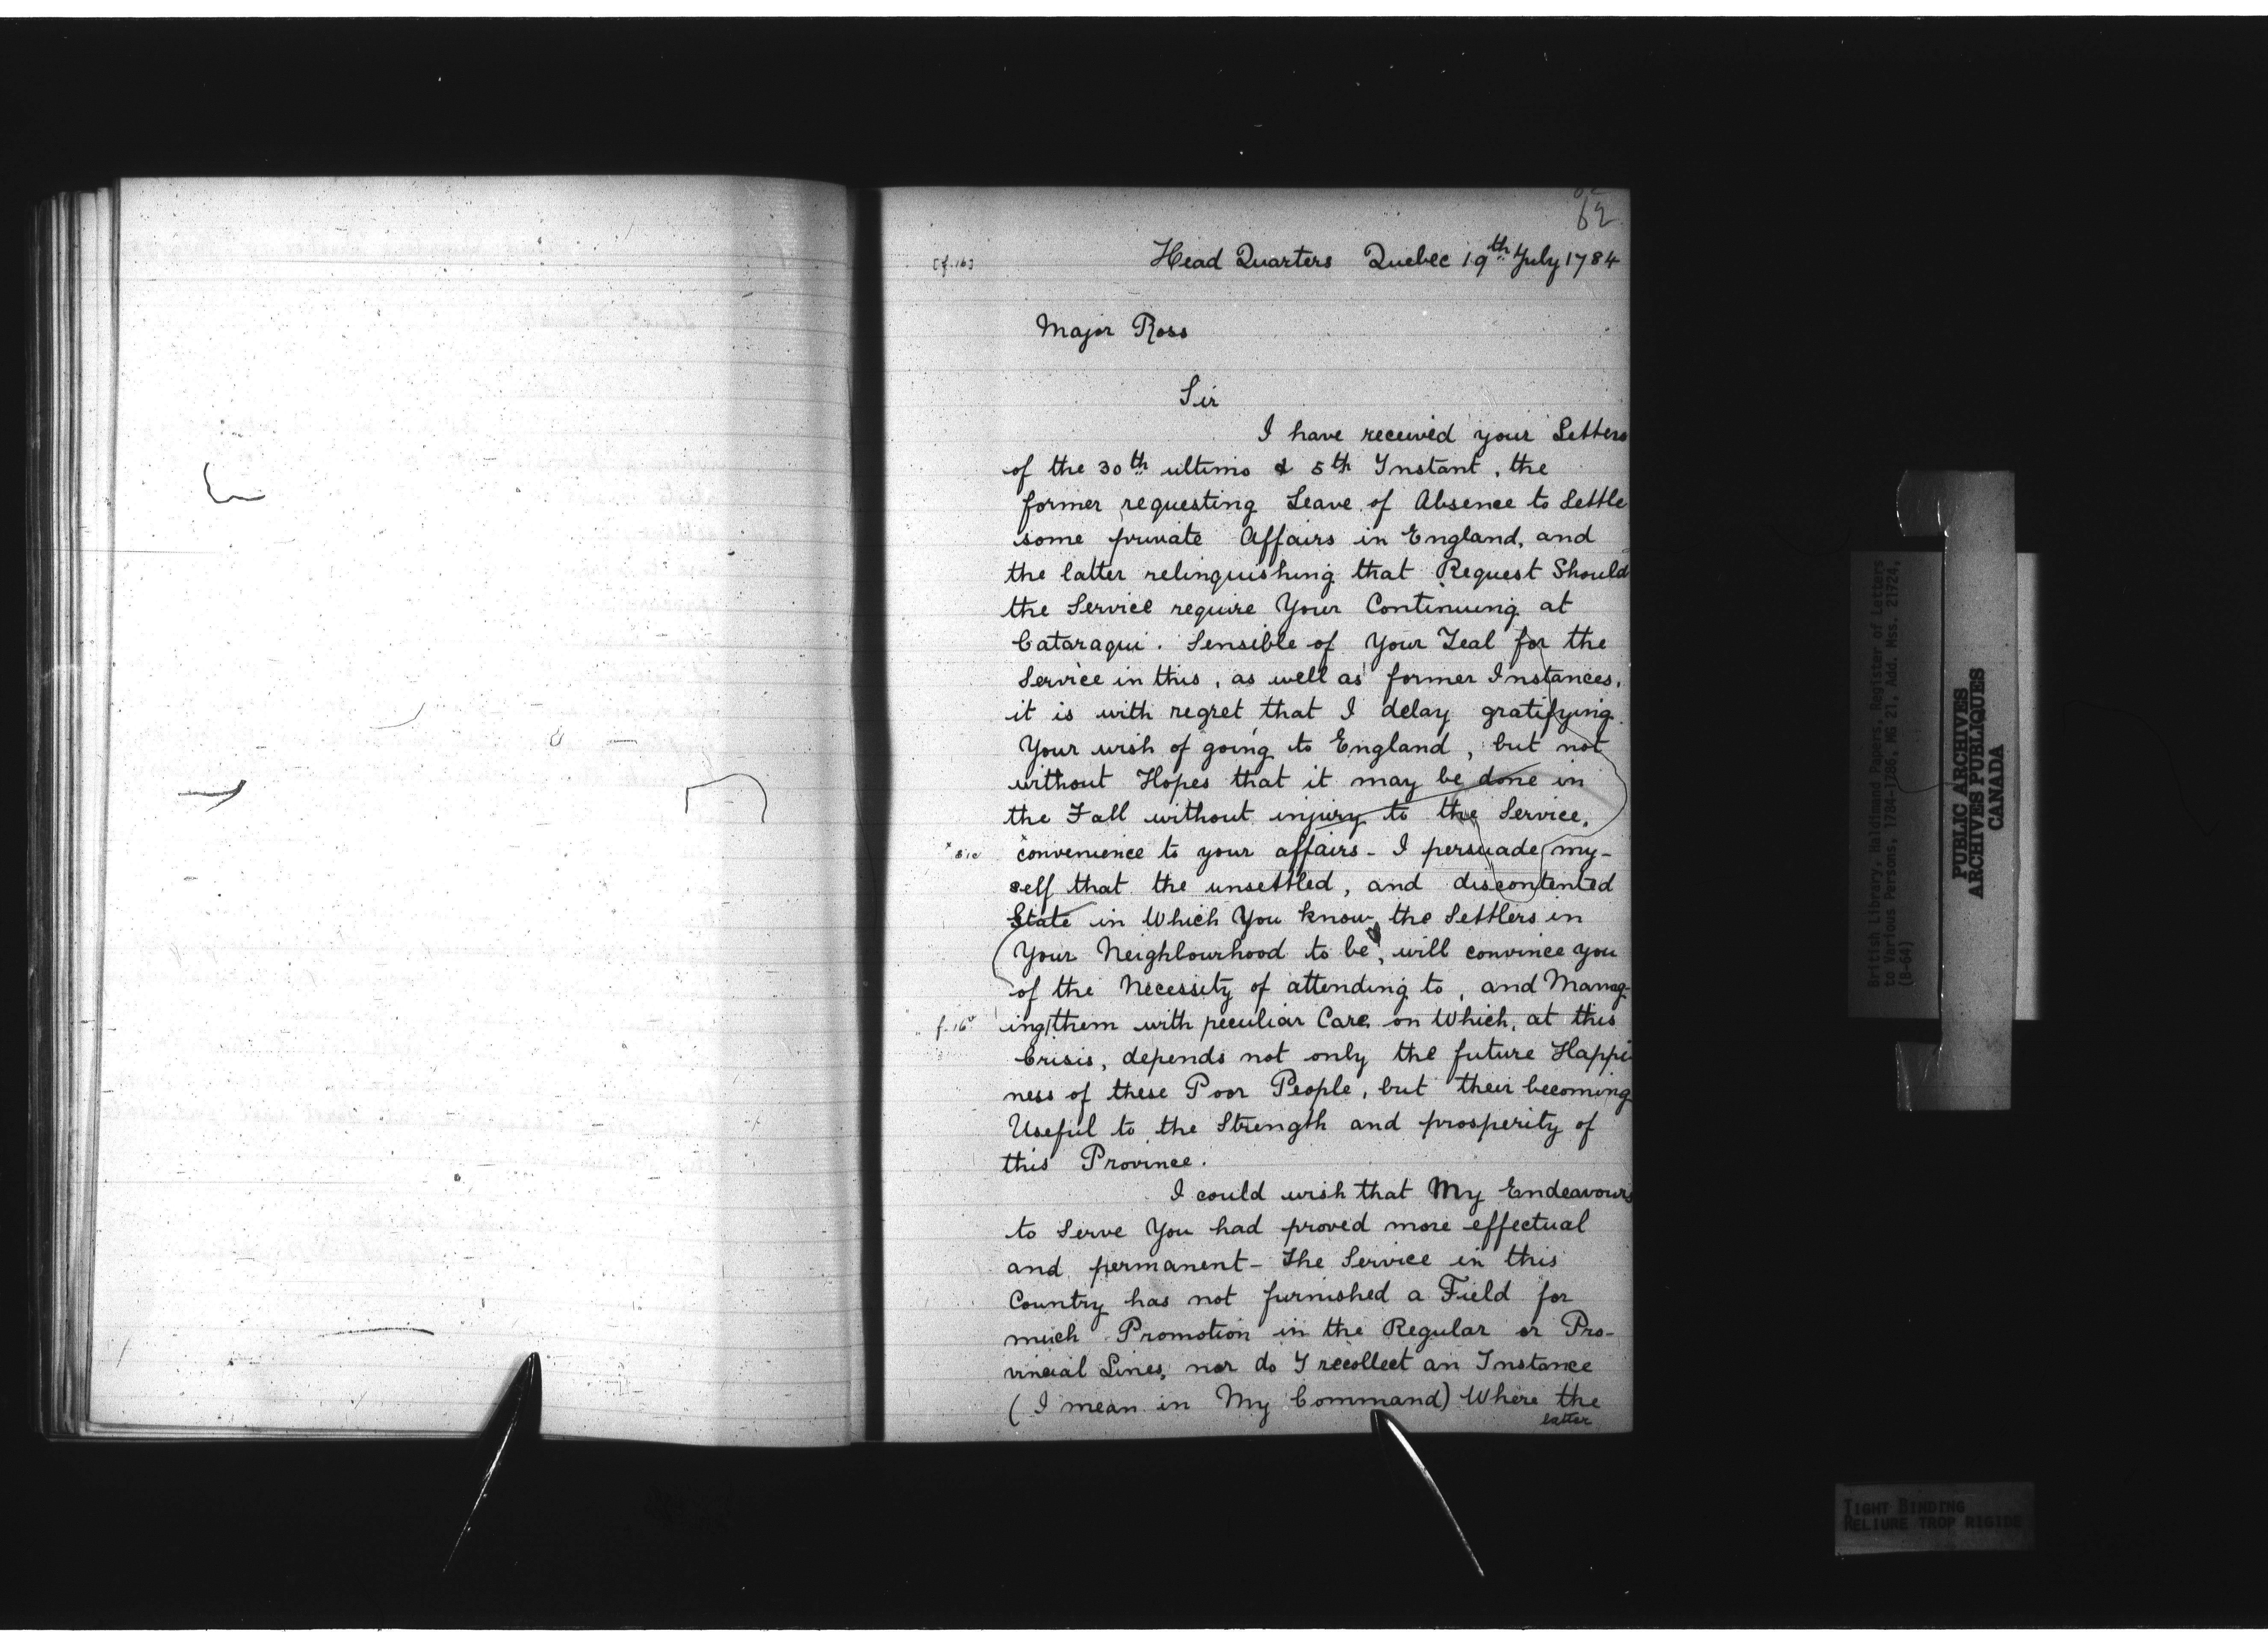 62
[f.16] Head Quarters Quebec 19th July 1784
Major Ross
Sir
I have received your Letters
of the 30th ultimo & 5th Instant, the
former requesting Leave of Absence to Settle
some private Affairs in England, and
the latter relinquishing that Request Should
the Service require Your Continuing at
Cataraqui. Sensible of Your Zeal for the
Service in this, as well as former Instances,
it is with regret that I delay gratifying
Your wish of going to England, but not
without Hopes that it may be done in
the Fall without injury to the Service,
*sic *convenience to your affairs - I persuade my-
self that the unsettled, and discontented
State in Which You know the Settlers in
Your Neighbourhood to be, will convince you
of the Necessity of attending to, and Manag-
f.16v ing/them with peculiar Care, on Which, at this
Crisis, depends not only the future Happi-
ness of these Poor People, but their becoming
Useful to the Strength and prosperity of
this Province.
I could wish that My Endeavours
to Serve You had proved more effectual
and permanent - The Service in this
Country has not furnished a Field for
much Promotion in the Regular or Pro-
vincial Lines, nor do I recollect an Instance
(I mean in My Command) Where the
latter
British Library, Haldimand Papers, Register of Letters
to Various Persons, 1784-1786, MG 21, Add. Mss. 21724,
(B-64)
PUBLIC ARCHIVES
ARCHIVES PUBLIQUES
CANADA
TIGHT BINDING
RELIURE TROP RIGIDE